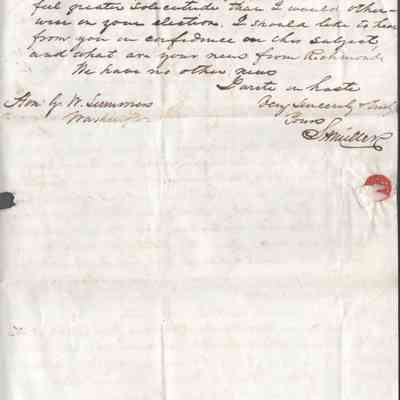 ful greater solicitude than I would other-
wise in your election. I should like to hear
from you in confidence on this subject,
and what are your news from Richmond.
We have no other news
I write in haste
Very Sincerely & Truly
Yours
Hon. G. W. Summers
Washington